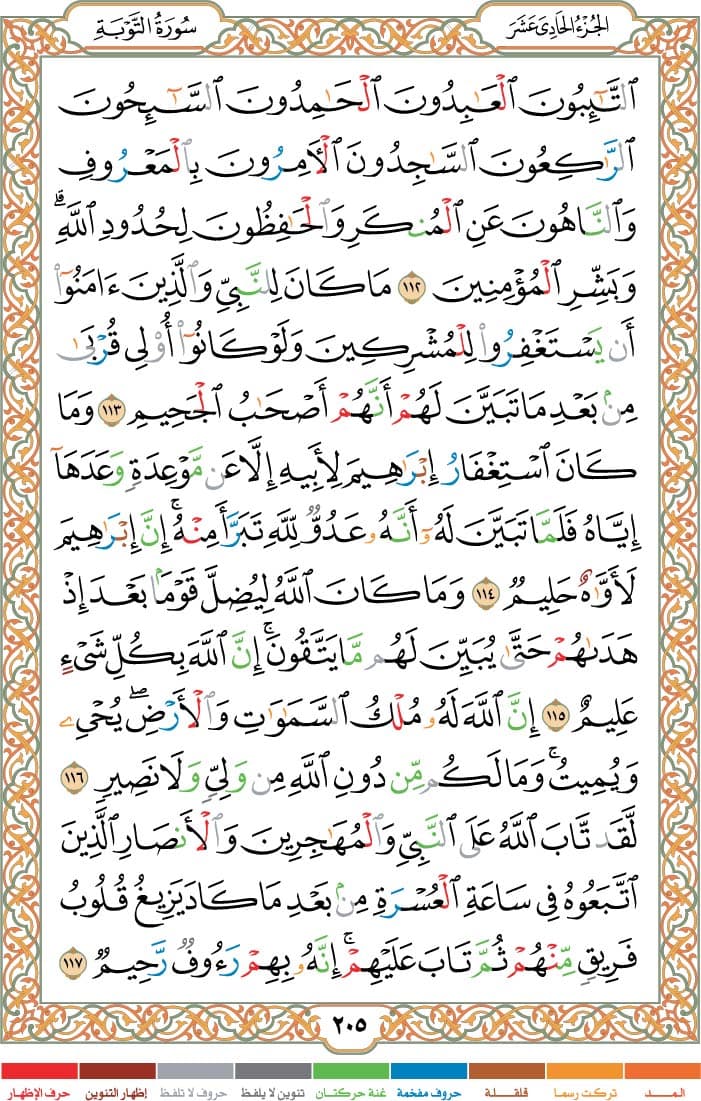 الجُزْءُ الحَادِي عَشَرَ
سُورَةُ التَّوْبَةِ
ٱلتَّٰٓئِبُونَ ٱلْعَٰبِدُونَ ٱلْحَٰمِدُونَ ٱلسَّٰٓئِحُونَ
ٱلرَّٰكِعُونَ ٱلسَّٰجِدُونَ ٱلْءَامِرُونَ بِٱلْمَعْرُوفِ
وَٱلنَّاهُونَ عَنِ ٱلْمُنكَرِ وَٱلْحَٰفِظُونَ لِحُدُودِ ٱللَّهِۗ
وَبَشِّرِ ٱلْمُؤْمِنِينَ ١١٢ مَا كَانَ لِلنَّبِيِّ وَٱلَّذِينَ ءَامَنُوٓا۟
أَن يَسْتَغْفِرُوا۟ لِلْمُشْرِكِينَ وَلَوْ كَانُوٓا۟ أُو۟لِى قُرْبَىٰ
مِنۢ بَعْدِ مَا تَبَيَّنَ لَهُمْ أَنَّهُمْ أَصْحَٰبُ ٱلْجَحِيمِ ١١٣ وَمَا
كَانَ ٱسْتِغْفَارُ إِبْرَٰهِيمَ لِأَبِيهِ إِلَّا عَن مَّوْعِدَةٍ وَعَدَهَآ
إِيَّاهُ فَلَمَّا تَبَيَّنَ لَهُۥٓ أَنَّهُۥ عَدُوٌّ لِّلَّهِ تَبَرَّأَ مِنْهُۚ إِنَّ إِبْرَٰهِيمَ
لَأَوَّٰهٌ حَلِيمٌ ١١٤ وَمَا كَانَ ٱللَّهُ لِيُضِلَّ قَوْمًۢا بَعْدَ إِذْ
هَدَىٰهُمْ حَتَّىٰ يُبَيِّنَ لَهُم مَّا يَتَّقُونَۚ إِنَّ ٱللَّهَ بِكُلِّ شَىْءٍ
عَلِيمٌ ١١٥ إِنَّ ٱللَّهَ لَهُۥ مُلْكُ ٱلسَّمَٰوَٰتِ وَٱلْأَرْضِۖ يُحْىِۦ
وَيُمِيتُۚ وَمَا لَكُم مِّن دُونِ ٱللَّهِ مِن وَلِىٍّ وَلَا نَصِيرٍ ١١٦
لَّقَد تَّابَ ٱللَّهُ عَلَى ٱلنَّبِىِّ وَٱلْمُهَٰجِرِينَ وَٱلْأَنصَارِ ٱلَّذِينَ
ٱتَّبَعُوهُ فِى سَاعَةِ ٱلْعُسْرَةِ مِنۢ بَعْدِ مَا كَادَ يَزِيغُ قُلُوبُ
فَرِيقٍ مِّنْهُمْ ثُمَّ تَابَ عَلَيْهِمْۚ إِنَّهُۥ بِهِمْ رَءُوفٌ رَّحِيمٌ ١١٧
٢٠٥
المـــد تركت رسما قلقلة حروف مفخمة غنة حركتان تنوين لا يلفظ حروف لا تلفظ إظهار التنوين حرف الإظهار